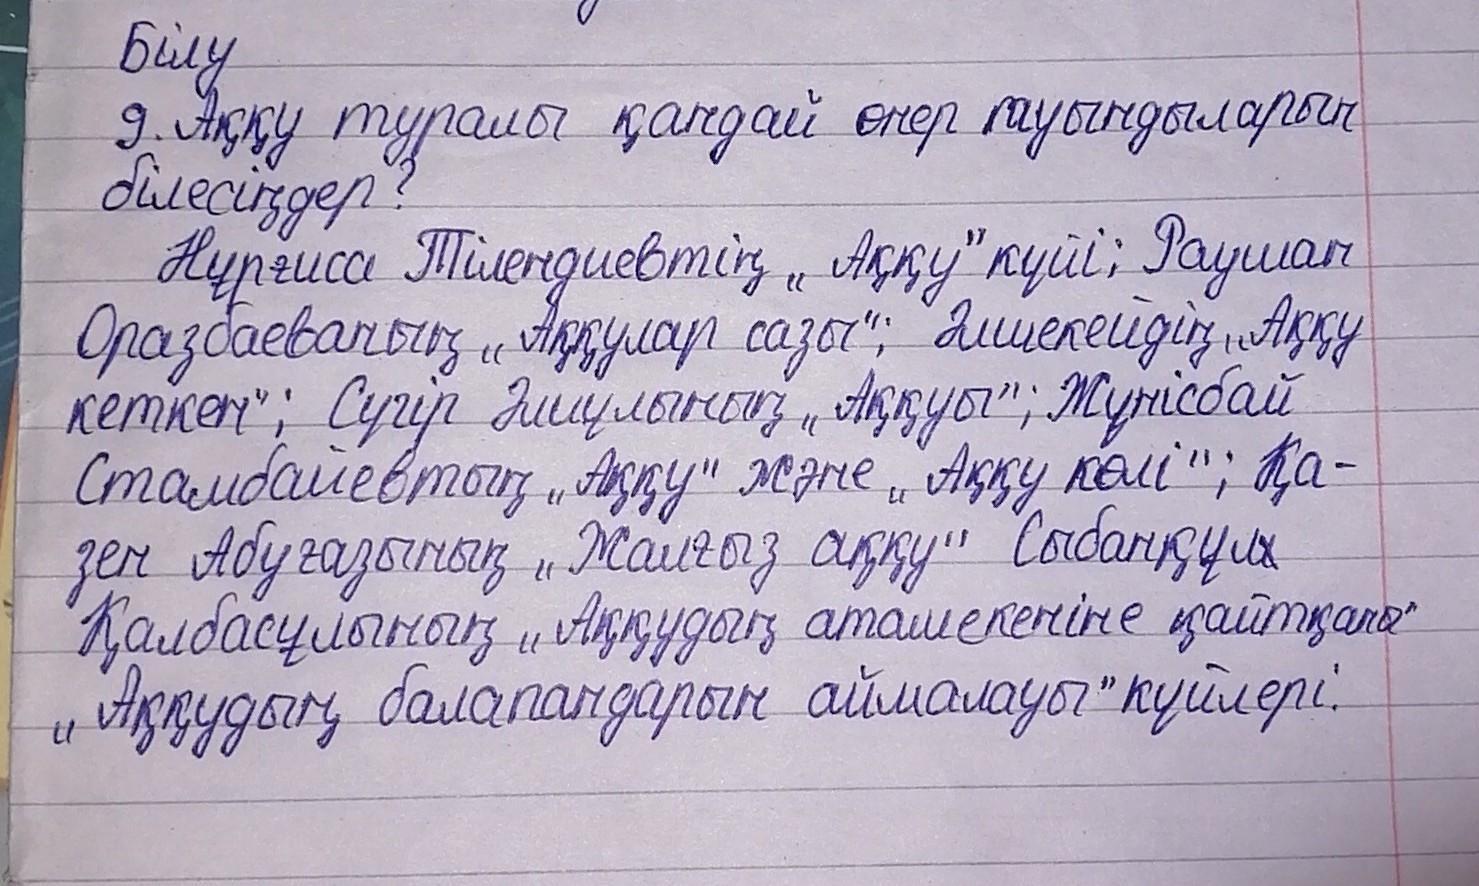 Білу
9. Аққу туралы қандай өнер туындыларын
білесіңдер?
Нұрғиса Тілендиевтің „Аққу" күйі; Раушан
Оразбаеваның „Аққулар сазы"; Әшекейдің „Аққу
кеткен"; Сүгір Әлиұлының „Аққуы"; Жүнісбай
Стамбайевтың „Аққу" және „Аққу көлі"; Қа-
зен Абуғазының „Жалғыз аққу" Сыбанқұл
Қалбасұлының „Аққудың аташекеніне қайтқаны"
„Аққудың балапандарын аймалауы" күйлері.